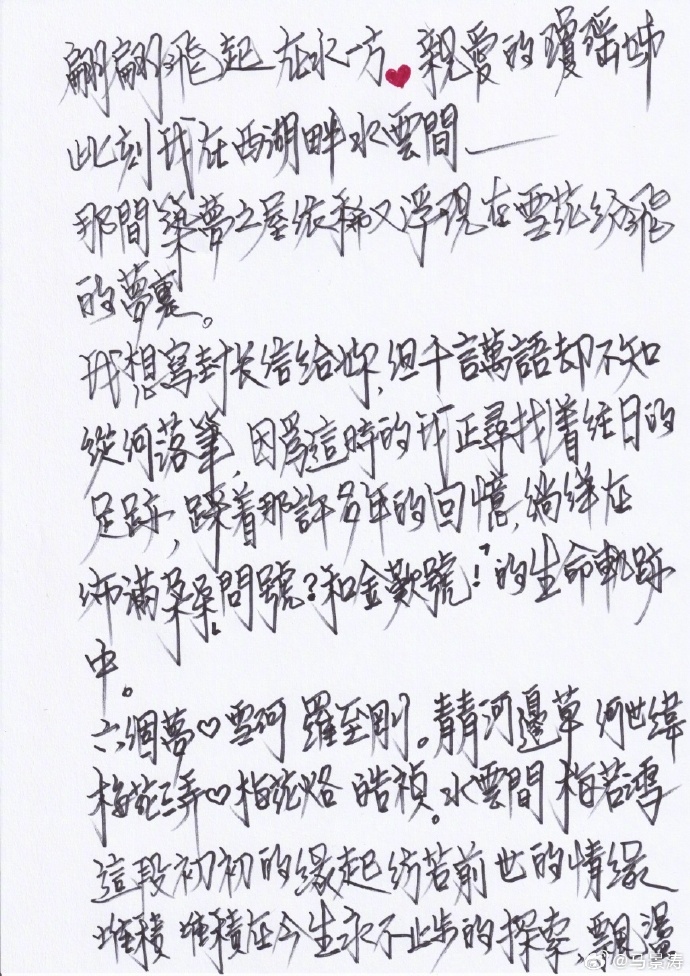 翩翩飛起 在水一方 ♥ 親愛的瓊瑤姊
此刻我在西湖畔水雲間——
那間築夢之屋依稀又浮現在雪花紛飛
的夢裏。
我想寫封长信給妳,但千言萬語却不知
從何落筆,因爲這時的我正尋找着往日的
足跡,踩着那許多年的回憶,徜徉在
佈滿 問號?和金歎號!的生命軌跡
中。
六個夢♡雪珂 羅至剛。青青河邊草 何世緯
梅花三弄♡梅花烙 皓禎。水雲間 梅若鴻
這段初初的緣起彷若前世的情緣
堆積 堆積在今生永不止步的探索,飄盪
@马景涛